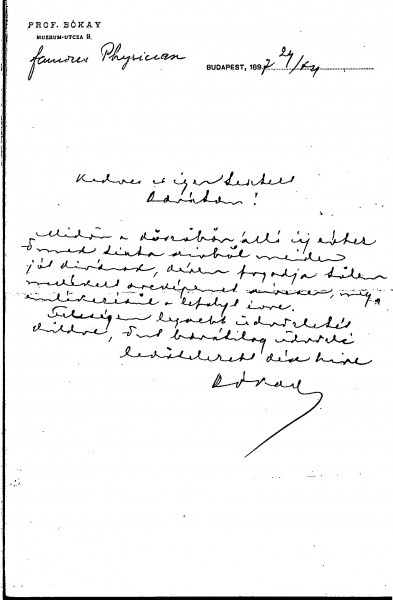 PROF. BÓKAY
MUZEUM-UTCZA 9.
famous Physician
BUDAPEST, 1897 24/XII
Kedves és igen tisztelt
Barátom!
Midőn a küszöbön álló új évhez
Önnek tiszta szívből minden
jót kívánok, kérem fogadja tőlem
mellékelt arczképemet szívesen,
emlékezésül a lefolyt évre.
Feleségem legszebb üdvözletét
küldve, Önt barátilag üdvözli
lekötelezett kész híve
Bókay